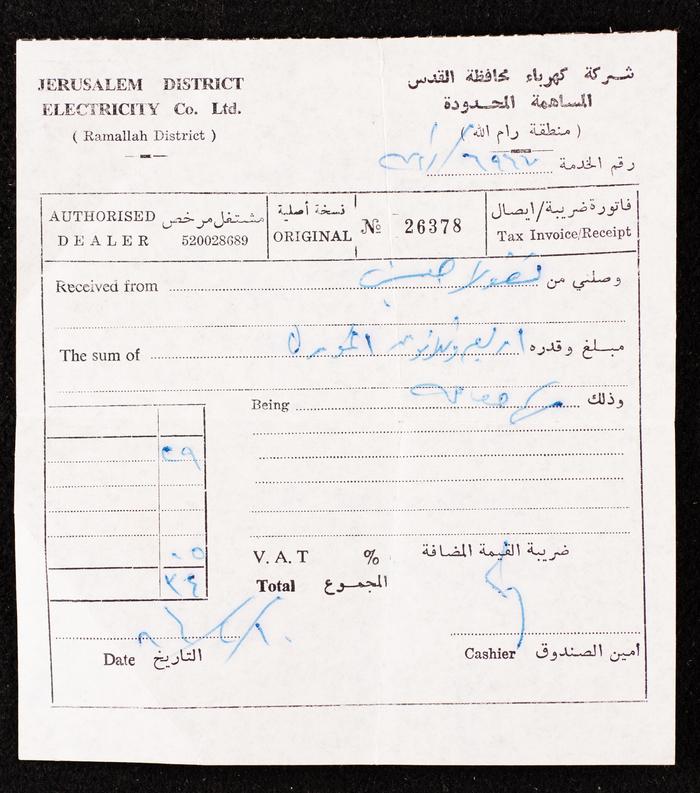 JERUSALEM DISTRICT
ELECTRICITY Co. Ltd.
( Ramallah District )
شركة كهرباء محافظة القدس
المساهمة المحدودة
( منطقة رام الله )
رقم الخدمة
AUTHORISED DEALER مشتغل مرخص 520028689
نسخة أصلية ORIGINAL
№ 26378
فاتورة ضريبة/ايصال
Tax Invoice/Receipt
Received from وصلني من
The sum of مبلغ وقدره
Being وذلك
٢٩
٠٥
V. A. T % ضريبة القيمة المضافة
٣٤
Total المجموع
Date التاريخ
Cashier امين الصندوق